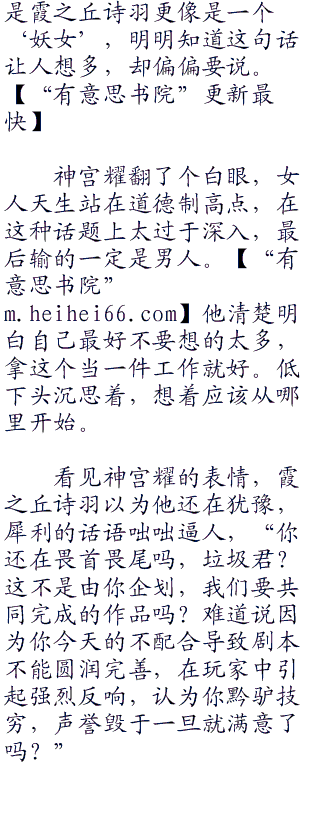 是霞之丘诗羽更像是一个
‘妖女’，明明知道这句话
让人想多，却偏偏要说。
【“有意思书院”更新最
快】
神宫耀翻了个白眼，女
人天生站在道德制高点，在
这种话题上太过于深入，最
后输的一定是男人。【“有
意思书院”
m.heihei66.com】他清楚明
白自己最好不要想的太多，
拿这个当一件工作就好。低
下头沉思着，想着应该从哪
里开始。
看见神宫耀的表情，霞
之丘诗羽以为他还在犹豫，
犀利的话语咄咄逼人，“你
还在畏首畏尾吗，垃圾君？
这不是由你企划，我们要共
同完成的作品吗？难道说因
为你今天的不配合导致剧本
不能圆润完善，在玩家中引
起强烈反响，认为你黔驴技
穷，声誉毁于一旦就满意了
吗？”